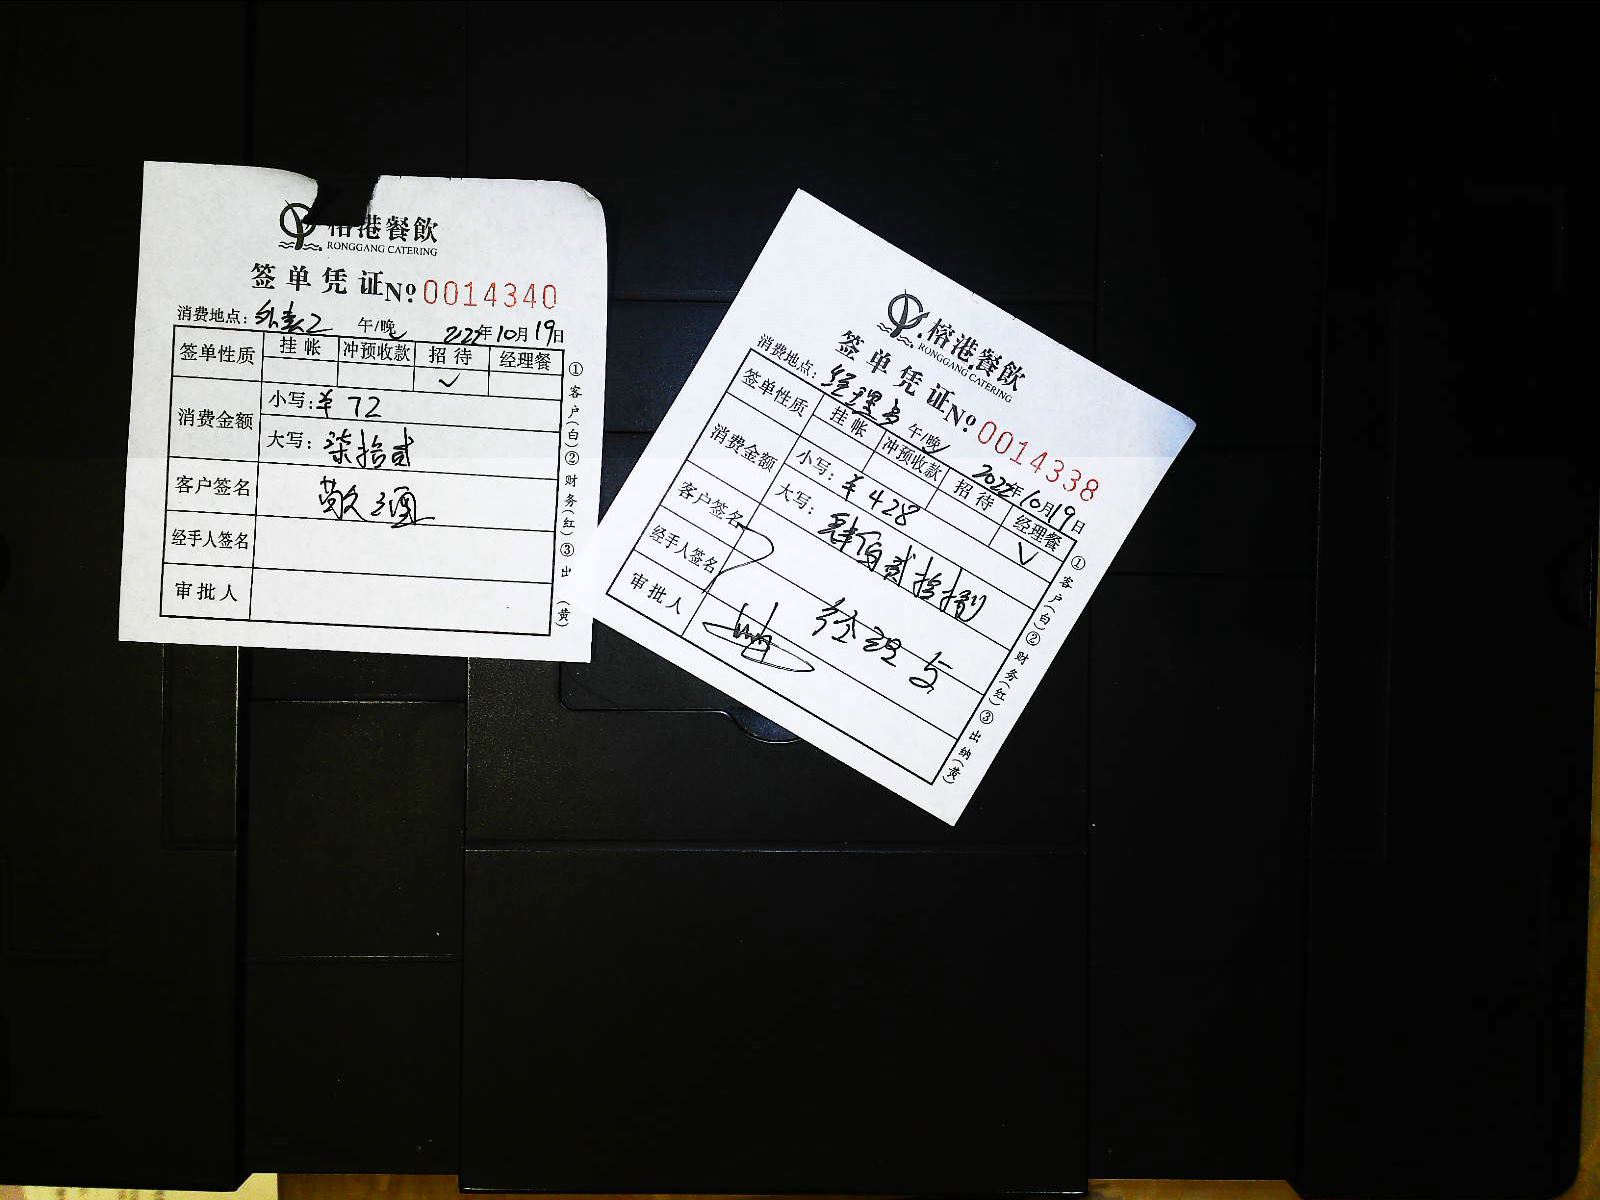 榕港餐飲
RONGGANG CATERING
签单凭证 №0014340
消费地点: 午/晚 2022年10月19日
签单性质 挂帐 冲预收款 招待 经理餐
✓
消费金额 小写:¥72
大写:柒拾贰
客户签名 敬酒
经手人签名
审批人
①客户(白)②财务(红)③出 (黄)
榕港餐飲
RONGGANG CATERING
签单凭证 №0014338
消费地点: 经理 午/晚 2022年10月19日
签单性质 挂帐 冲预收款 招待 经理餐
✓
消费金额 小写:¥428
大写:肆佰贰拾捌
客户签名
经手人签名 经理
审批人
①客户(白)②财务(红)③出纳(黄)